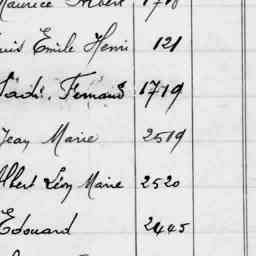 Maurice Albert 1718
Louis Emile Henri 121
Fernand 1719
Jean Marie 2519
Albert Léon Marie 2520
Edouard 2445